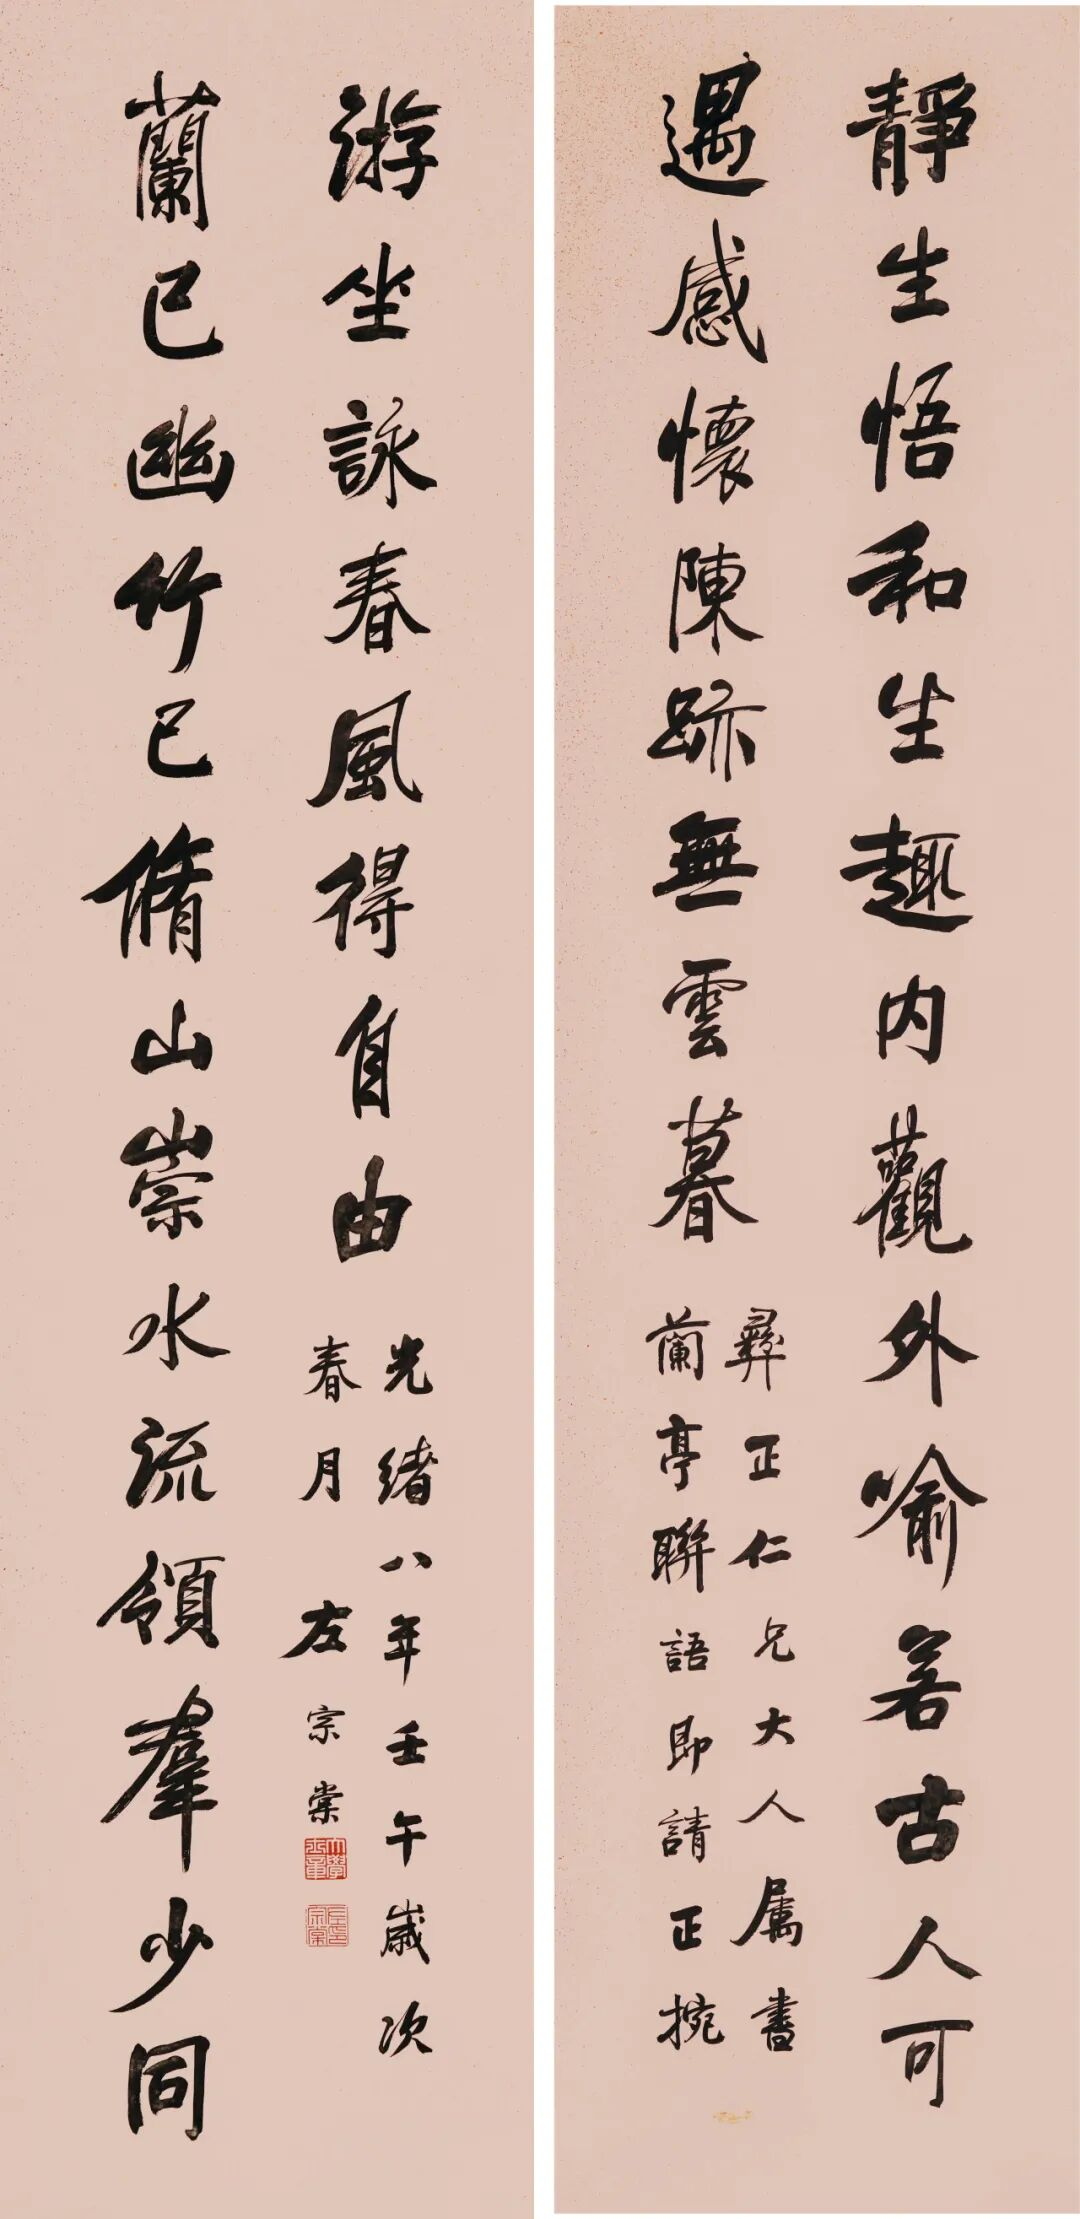 靜生悟和生趣内觀外喻若古人可
遇感懷陳跡無雲暮
彝正仁兄大人属書
蘭亭聯語即請正捥
蘭已幽竹已脩山崇水流領羣少同
游坐詠春風得自由
光緒八年壬午歲次
春月 左宗棠
大學士章
左宗棠印